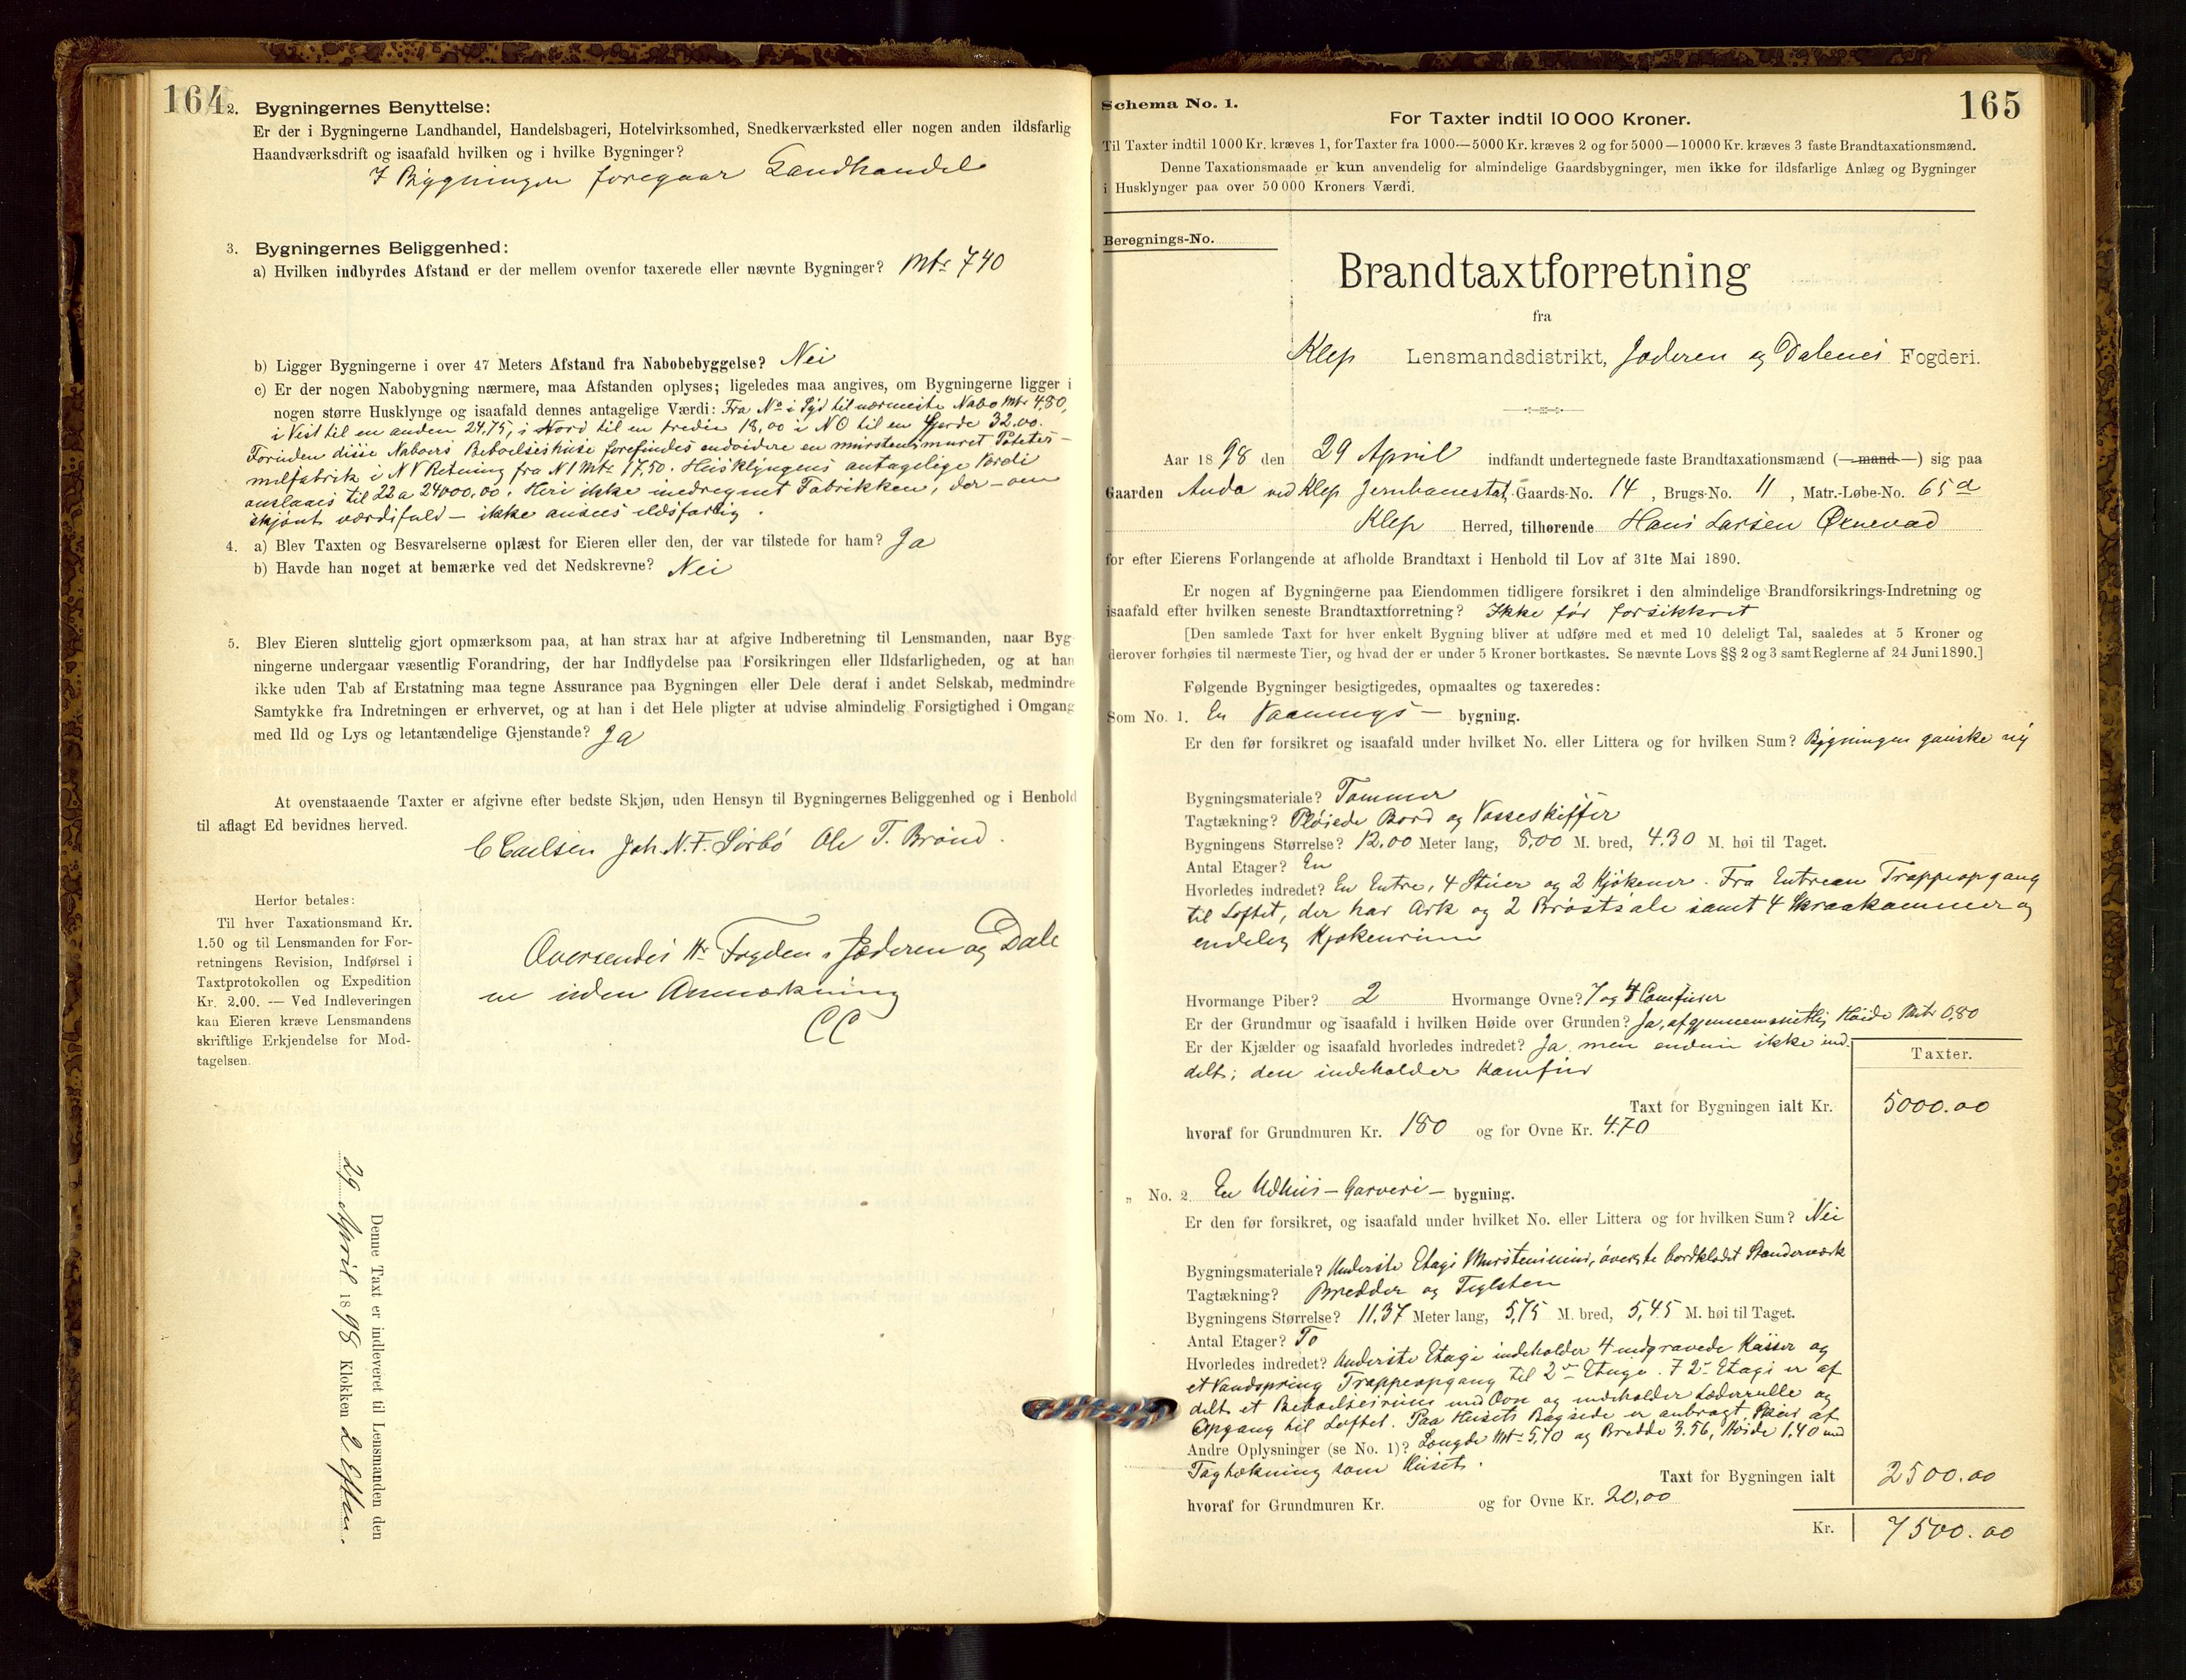 164
2. Bygningernes Benyttelse:
Er der i Bygningerne Landhandel, Handelsbageri, Hotelvirksomhed, Snedkerværksted eller nogen anden ildsfarlig
Haandværksdrift og isaafald hvilken og i hvilke Bygninger?
I Bygningen foregaar Landhandel
3. Bygningernes Beliggenhed:
a) Hvilken indbyrdes Afstand er der mellem ovenfor taxerede eller nævnte Bygninger? Mtr 740
b) Ligger Bygningerne i over 47 Meters Afstand fra Nabobebyggelse? Nei
c) Er der nogen Nabobygning nærmere, maa Afstanden oplyses; ligeledes maa angives, om Bygningerne ligger i
nogen større Husklynge og isaafald dennes antagelige Værdi: Fra No 1 i Syd til nærmeste Nabo Mtr 4,80,
i Vest til en anden 24,75, i Nord til en tredie 18,00 i NO til en fjerde 32.00.
Foruden disse Naboers Beboelseshuse forefindes endvidere en murstensmuret Potetes-
melfabrik i NV Retning fra N 1 Mtr 17,50. Husklyngens antagelige Værdi
anslaaes til 22 a 24000,00. Heri ikke medregnet Fabrikken, der - om
skjønt værdifuld - ikke ansees ildsfarlig.
4. a) Blev Taxten og Besvarelserne oplæst for Eieren eller den, der var tilstede for ham? Ja
b) Havde han noget at bemærke ved det Nedskrevne? Nei
5. Blev Eieren sluttelig gjort opmærksom paa, at han strax har at afgive Indberetning til Lensmanden, naar Byg
ningerne undergaar væsentlig Forandring, der har Indflydelse paa Forsikringen eller Ildsfarligheden, og at han
ikke uden Tab af Erstatning maa tegne Assurance paa Bygningen eller Dele deraf i andet Selskab, medmindre
Samtykke fra Indretningen er erhvervet, og at han i det Hele pligter at udvise almindelig Forsigtighed i Omgang
med Ild og Lys og letantændelige Gjenstande? Ja
At ovenstaaende Taxter er afgivne efter bedste Skjøn, uden Hensyn til Bygningernes Beliggenhed og i Henhold
til aflagt Ed bevidnes herved.
C Carlsen Joh. N. F. Sørbö Ole T. Brönd.
Herfor betales:
Til hver Taxationsmand Kr.
1.50 og til Lensmanden for For-
retningens Revision, Indførsel i
Taxtprotokollen og Expedition
Kr. 2.00. — Ved Indleveringen
kan Eieren kræve Lensmandens
skriftlige Erkjendelse for Mod-
tagelsen.
Oversendes Hr Fogden i Jæderen og Dale
ne uden Anmærkning
CC
Denne Taxt er indleveret til Lensmanden den
29 April 1898 Klokken 2 Efterm.
165
Schema No. 1.
For Taxter indtil 10 000 Kroner.
Til Taxter indtil 1000 Kr. kræves 1, for Taxter fra 1000—5000 Kr. kræves 2 og for 5000—10000 Kr. kræves 3 faste Brandtaxationsmænd.
Denne Taxationsmaade er kun anvendelig for almindelige Gaardsbygninger, men ikke for ildsfarlige Anlæg og Bygninger
i Husklynger paa over 50 000 Kroners Værdi.
Beregnings-No.
Brandtaxtforretning
fra
Klep Lensmandsdistrikt, Jæderen og Dalenes Fogderi.
Aar 1898 den 29 April indfandt undertegnede faste Brandtaxationsmænd (—mand—) sig paa
Gaarden Anda ved Klep Jernbanestat, Gaards-No. 14, Brugs-No. 11, Matr.-Løbe-No. 65 d
Klep Herred, tilhørende Hans Larsen Öxnevad
for efter Eierens Forlangende at afholde Brandtaxt i Henhold til Lov af 31te Mai 1890.
Er nogen af Bygningerne paa Eiendommen tidligere forsikret i den almindelige Brandforsikrings-Indretning og
isaafald efter hvilken seneste Brandtaxtforretning? Ikke før forsikkret
[Den samlede Taxt for hver enkelt Bygning bliver at udføre med et med 10 deleligt Tal, saaledes at 5 Kroner og
derover forhøies til nærmeste Tier, og hvad der er under 5 Kroner bortkastes. Se nævnte Lovs §§ 2 og 3 samt Reglerne af 24 Juni 1890.]
Følgende Bygninger besigtigedes, opmaaltes og taxeredes:
Som No. 1. En Vaanings— bygning.
Er den før forsikret og isaafald under hvilket No. eller Littera og for hvilken Sum? Bygningen ganske ny
Bygningsmateriale? Tømmer
Tagtækning? Pløiede Bord og Vosseskiffer
Bygningens Størrelse? 12.00 Meter lang, 8,00 M. bred, 4.30 M. høi til Taget.
Antal Etager? En
Hvorledes indredet? En Entre, 4 Stuer og 2 Kjøkener. Fra Entreen Trappeopgang
til Loftet, der har Ark og 2 Brøstsale samt 4 Skraakammer og
endelig Kjøkenrum
Hvormange Piber? 2 Hvormange Ovne? 7 og 4 Comfurer
Er der Grundmur og isaafald i hvilken Høide over Grunden? Ja, af gjennemsnitlig Høide Mtr 0,80
Er der Kjælder og isaafald hvorledes indredet? Ja men endnu ikke ind-
delt; den indeholder Komfur
Taxter.
Taxt for Bygningen ialt Kr. 5000.00
hvoraf for Grundmuren Kr. 180 og for Ovne Kr. 470
„ No. 2. En Udhus - Garveri— bygning.
Er den før forsikret, og isaafald under hvilket No. eller Littera og for hvilken Sum? Nei
Bygningsmateriale? Underste Etage Murstensmur, øverste bordklædt Standerværk
Tagtækning? Bredder og Teglsten
Bygningens Størrelse? 11,37 Meter lang, 5,75 M. bred, 5,45 M. høi til Taget.
Antal Etager? To
Hvorledes indredet? Underste Etage indeholder 4 nedgravede Kasser og
et Vandspring Trappeopgang til 2den Etage. I 2den Etage er af
delt et Beboelsesrum med Ovn og indeholder Læderrulle og
Opgang til Loftet. Paa Husets Bagside er anbragt Skur af
Andre Oplysninger (se No. 1)? Længde Mtr 5,70 og Bredde 3.56, Høide 1,40 med
Tagtækning som Huset.
Taxt for Bygningen ialt 2500.00
hvoraf for Grundmuren Kr. og for Ovne Kr. 20,00
Kr. 7500.00